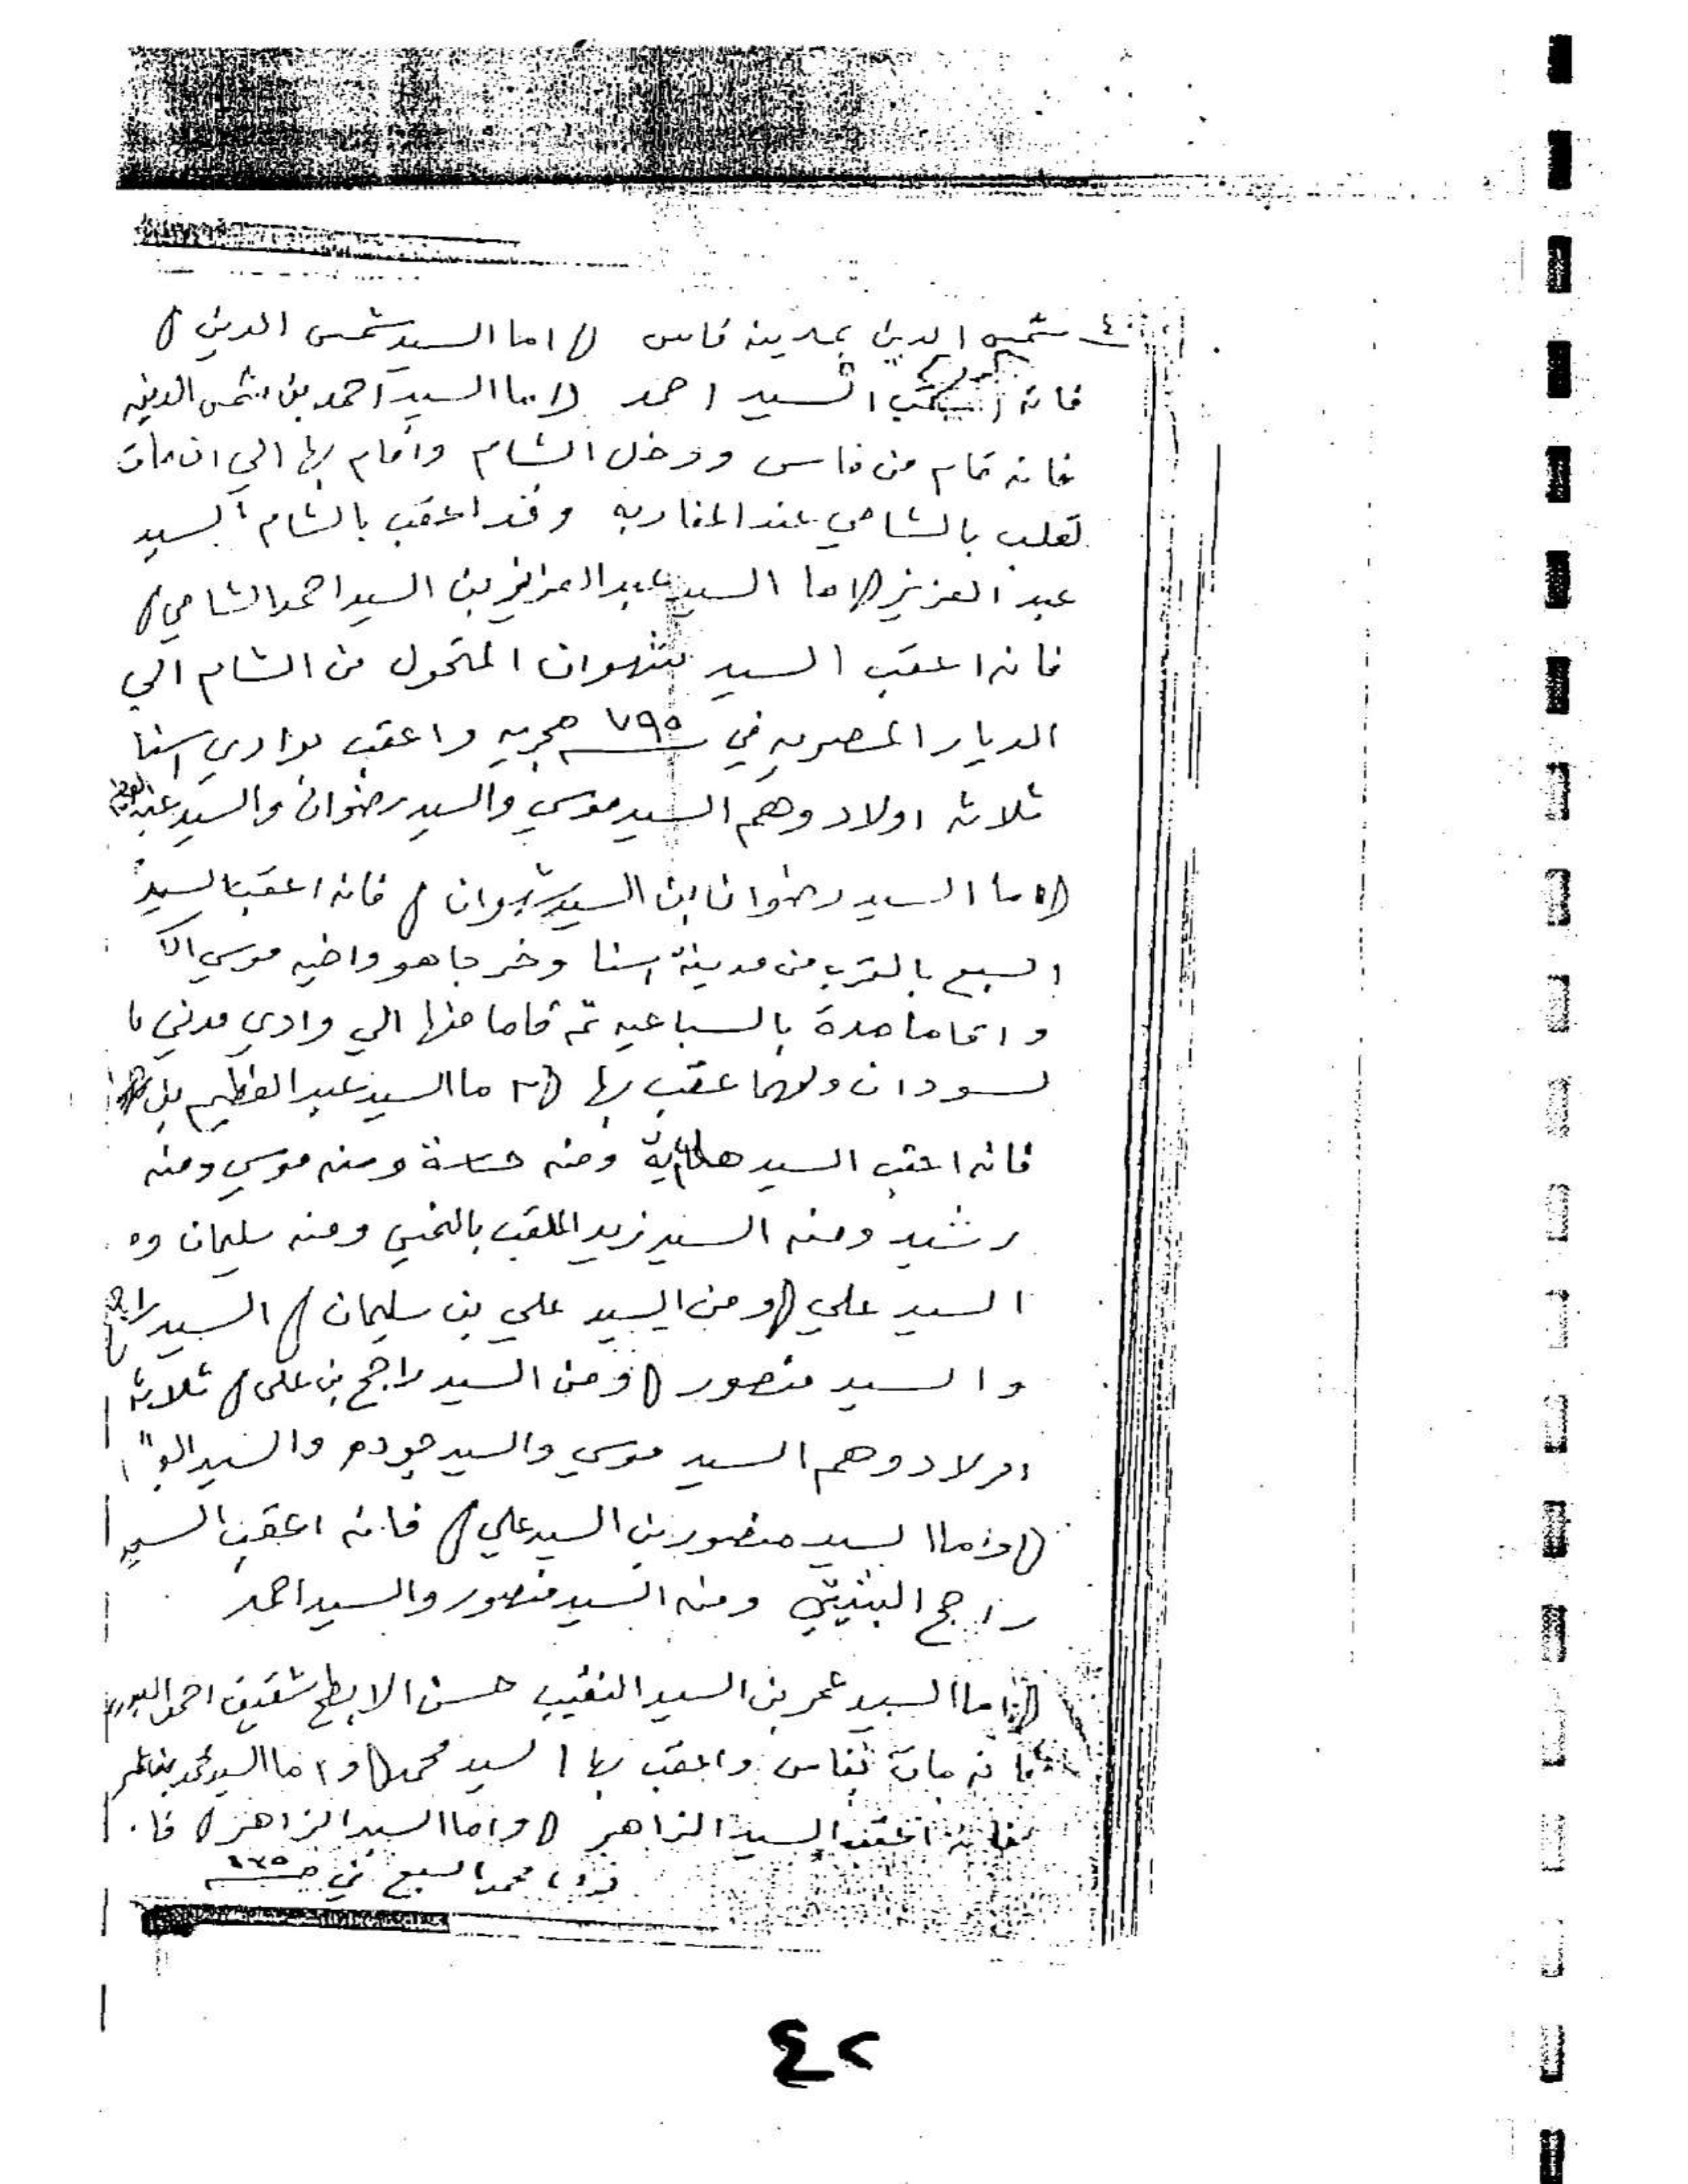 شمس الدين بمدينة فاس () اما السيد شمس الدين ()
فانه اعقب السيد احمد () اما السيد احمد بن شمس الدين
فانه قام من فاس ودخل الشام واقام بها الي ان مات
لقلب بالشامي عند المغاربه وقد اعقب بالشام السيد
عبد العزيز () اما السيد عبد العزيز بن السيد احمد الشامي ()
فانه اعقب السيد شهوان المتحول من الشام الي
الديار المصريه في ٧٩٥ هجريه واعقب بوادي اسنا
ثلاثه اولاد وهم السيد موسي والسيد رضوان والسيد عبد العظيم
() اما السيد رضوان ابن السيد شهوان () فانه اعقب السيد
السبع بالقرب من مدينة اسنا وخرجا هو واخيه موسي
واقاما مدة بالسباعيه ثم قاما منها الي وادي مدني با
لسودان ولهما عقب بها () اما السيد عبد العظيم بن
فانه اعقب السيد ومنه ومنه موسي ومنه
رشيد ومنه السيد زيد الملقب ومنه سليمان
السيد علي () ومن السيد علي بن سليمان () السيد راجح
والسيد منصور () ومن السيد راجح بن علي () ثلاثه
اولاد وهم السيد موسي والسيد جوده والسيد
() واما السيد منصور بن السيد علي () فانه اعقب السيد
راجح ومنه السيد منصور والسيد احمد
() اما السيد عمر بن السيد النقيب حسن الابطح شقيق احمد البدوي
فانه مات بفاس واعقب بها السيد محمد () واما السيد محمد بن عمر
فانه اعقب السيد الزاهر () واما السيد الزاهر () فا
محمد السبع في
٤٢